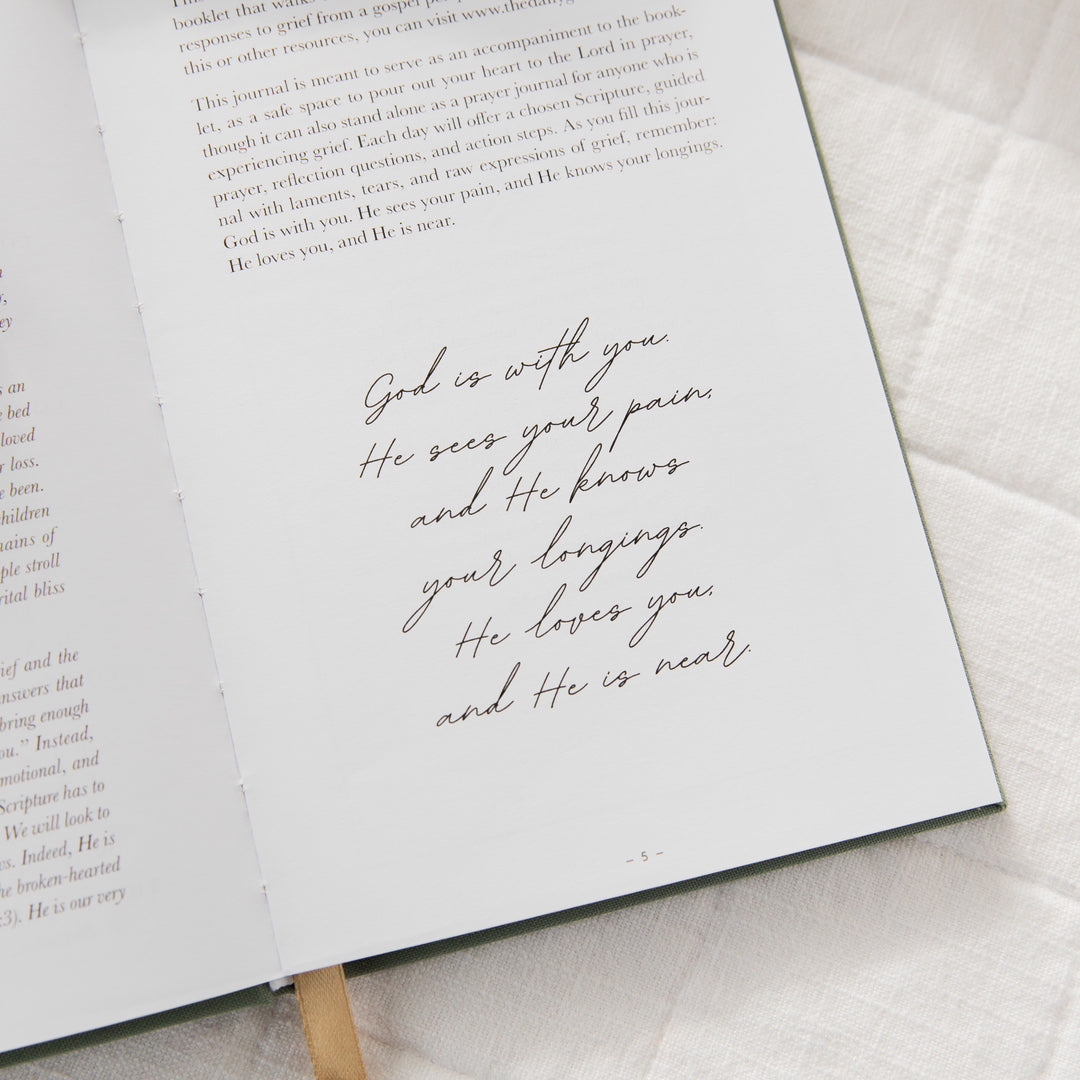 an
bed
loved
loss.
been.
of
stroll
bliss
and the
that
bring enough
Instead,
and
Scripture has to
We will look to
Indeed, He is
broken-hearted
He is our very
booklet that
responses to grief from a gospel
this or other resources, you can visit
This journal is meant to serve as an accompaniment to the book-
let, as a safe space to pour out your heart to the Lord in prayer,
though it can also stand alone as a prayer journal for anyone who is
experiencing grief. Each day will offer a chosen Scripture, guided
prayer, reflection questions, and action steps. As you fill this jour-
nal with laments, tears, and raw expressions of grief, remember:
God is with you. He sees your pain, and He knows your longings.
He loves you, and He is near.
God is with you.
He sees your pain,
and He knows
your longings.
He loves you,
and He is near.
– 5 –